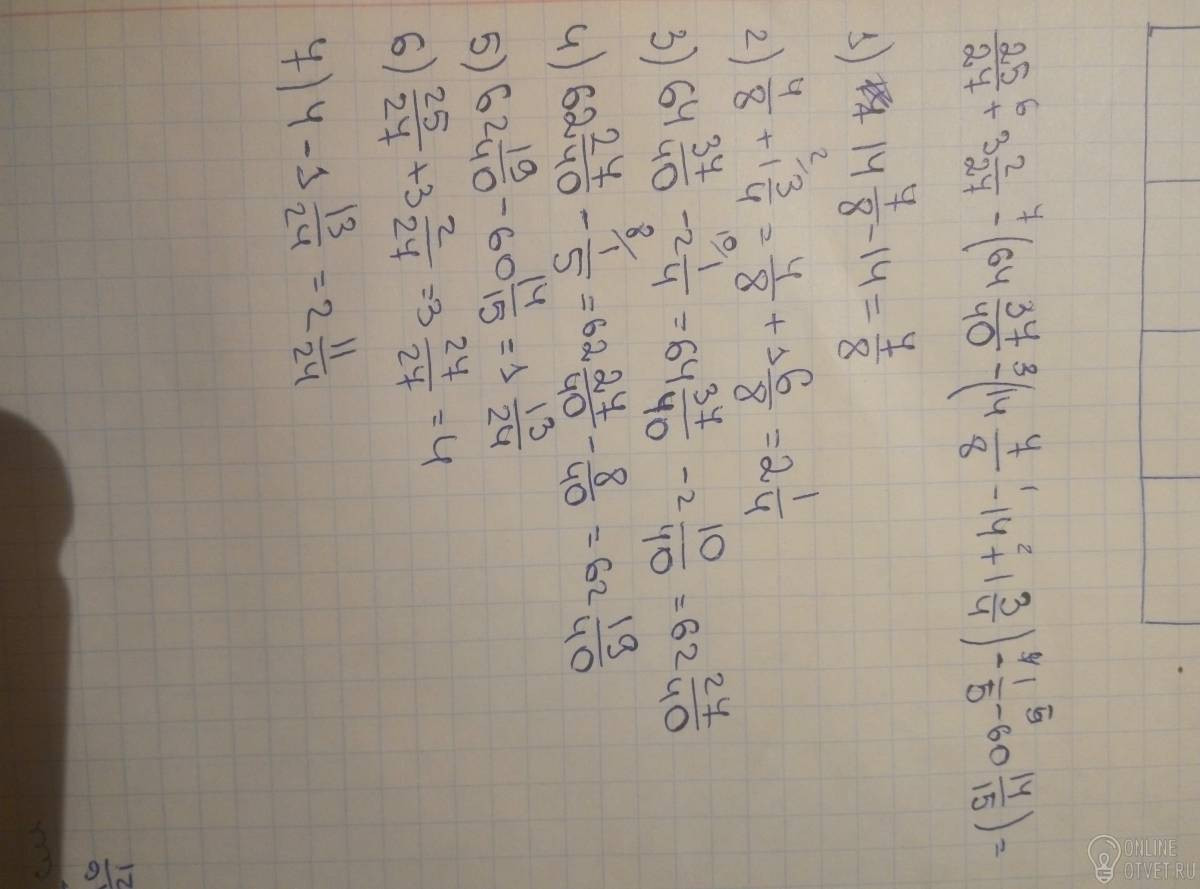 6 7 3 1 2 4 5
25/24 + 3 2/24 - (64 37/40 - (14 4/8 - 14 + 1 3/4) - 1/5 - 60 14/15) =
1) 14 4/8 - 14 = 4/8
2) 4/8 + 1 2/ 3/4 = 4/8 + 1 6/8 = 2 1/4
3) 64 37/40 - 2 10/ 1/4 = 64 37/40 - 2 10/40 = 62 27/40
4) 62 27/40 - 8/ 1/5 = 62 27/40 - 8/40 = 62 19/40
5) 62 19/40 - 60 14/15 = 1 13/24
6) 25/24 + 3 2/24 = 3 27/24 = 4
7) 4 - 1 13/24 = 2 11/24
ONLINE
OTVET.RU